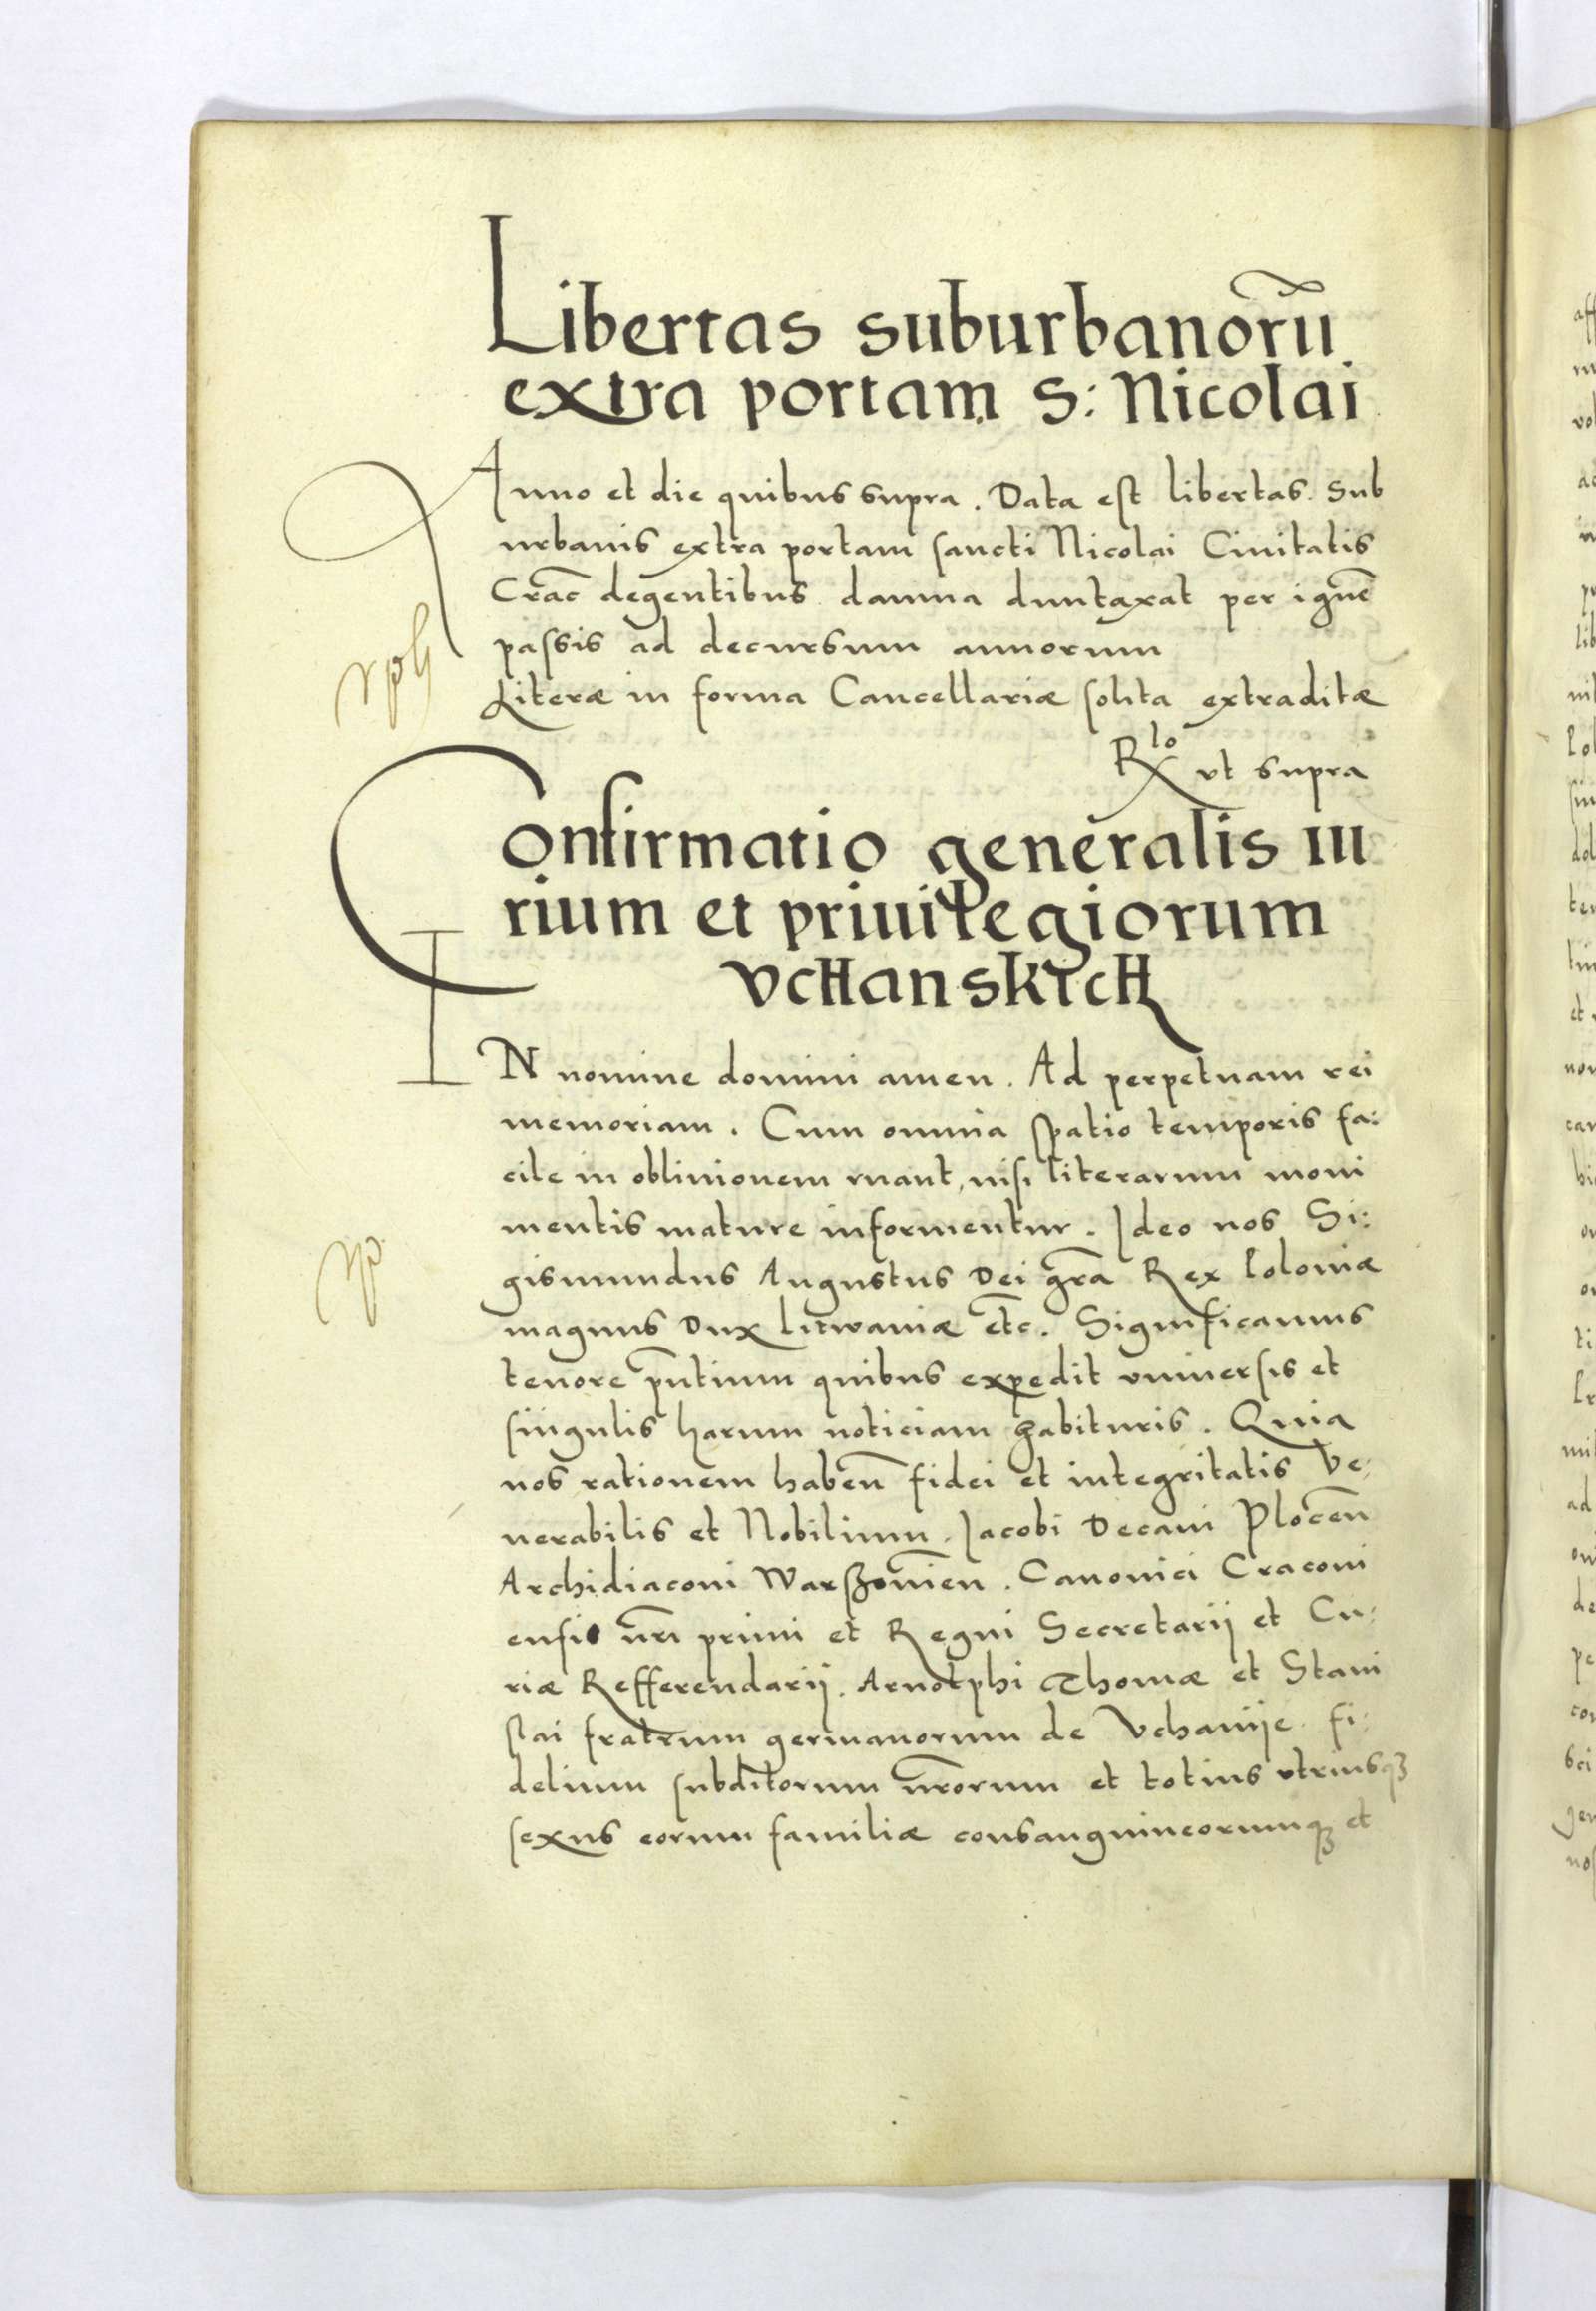 Libertas suburbanorū
extra portam S: Nicolai
Anno et die quibus supra. Data est libertas. Sub
urbanis extra portam sancti Nicolai Ciuitatis
Crac̄ degentibus damna duntaxat per ignē
passis ad decursum annorum
Literæ in forma Cancellariæ solita extraditæ
Rlo ut supra
Confirmatio generalis iu
rium et priuilegiorum
vchanskich
IN nomine domini amen. Ad perpetuam rei
memoriam. Cum omnia spatio temporis fa:
cile in obliuionem ruant, nisi literarum moni
mentis mature informentur. Ideo nos Si:
gismundus Augustus Dei gr̄a Rex Poloniæ
magnus Dux Litwaniæ etc̄. Significamus
tenore p̄ntium quibus expedit vniuersis et
singulis harum noticiam habituris. Quia
nos rationem haben̄ fidei et integritatis Ve:
nerabilis et Nobilium. Iacobi Decani Plocen̄
Archidiaconi Warszouien̄. Canonici Cracoui
ensis n̄ri primi et Regni Secretarij et Cu:
riæ Refferendarij. Arnolphi Thomæ et Stani
slai fratrum germanorum de Vchanije fi:
delium subditorum n̄rorum et totius vtriusqꝫ
sexus eorum familiæ consanguineorumqꝫ et